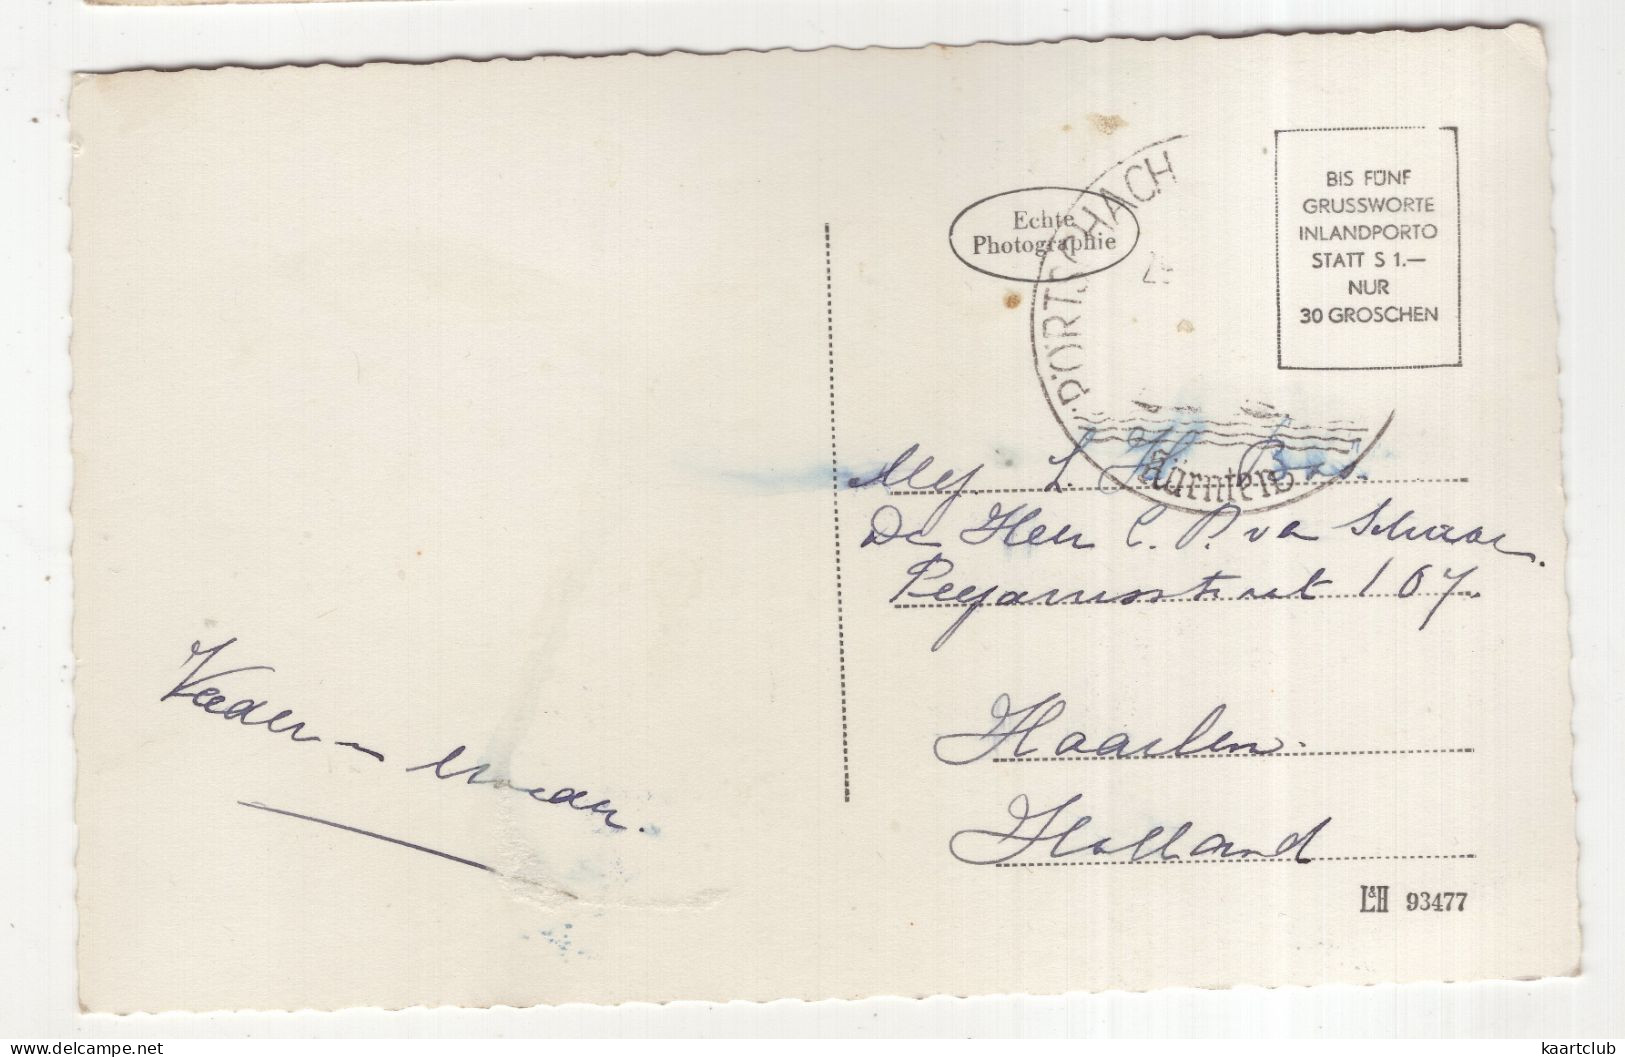 Echte
Photographie
PÖRTSCHACH
Kärnten
BIS FÜNF
GRUSSWORTE
INLANDPORTO
STATT S 1.—
NUR
30 GROSCHEN
Mej. L. H. Bas.
De Heer C. P. v a Schaar.
Pegasusstraat 107.
Haarlem.
Holland
Vader – moeder.
L&H 93477
www.delcampe.net
kaartclub